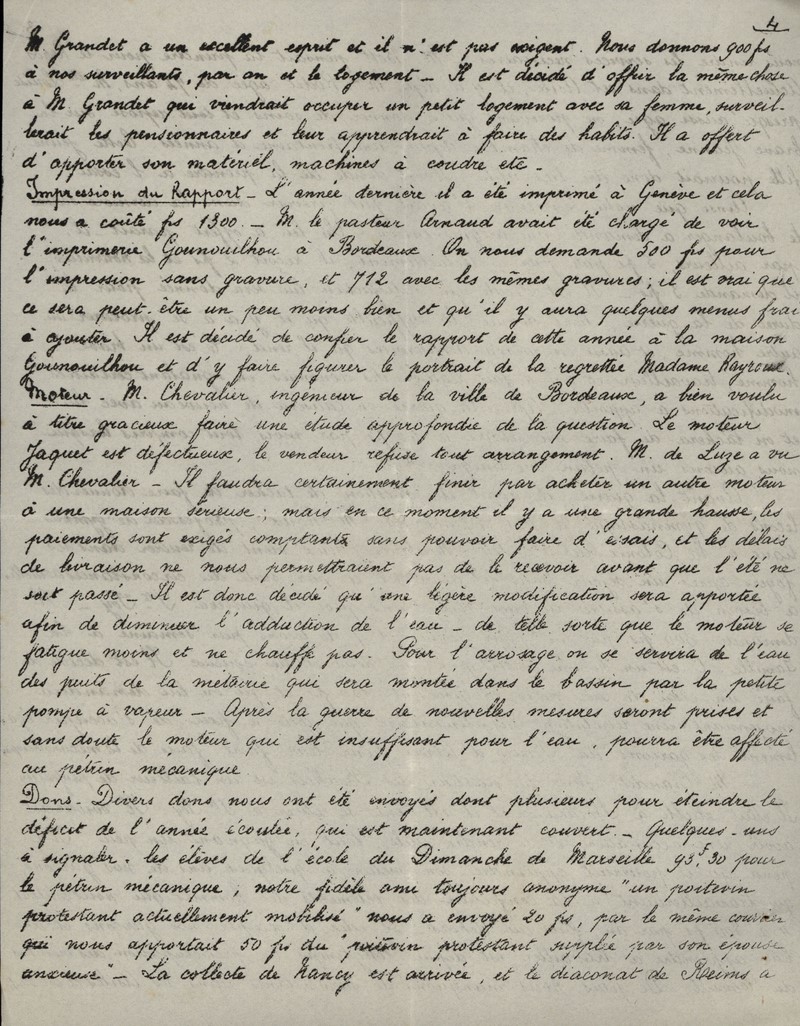 4
M. Grandet a un excellent esprit et il n'est pas exigent. Nous donnons 900 fs
à nos surveillants, par an et le logement — Il est décidé d'offrir la même chose
à M. Grandet qui viendrait occuper un petit logement avec sa femme, surveil-
lerait les pensionnaires et leur apprendrait à faire des habits. Il a offert
d'apporter son matériel, machines à coudre etc —
Impression du Rapport — L'année dernière il a été imprimé à Genève et cela
nous a coûté fs 1300. — M. le pasteur Arnaud avait été chargé de voir
l'imprimerie Gounouilhou à Bordeaux. On nous demande 500 fs pour
l'impression sans gravure, et 712 avec les mêmes gravures ; il est vrai que
ce sera peut-être un peu moins bien et qu'il y aura quelques menus frai
à ajouter. Il est décidé de confier le rapport de cette année à la maison
Gounouilhou et d'y faire figurer le portrait de la regrettée Madame Rayroux.
Moteur — M. Chevalier, ingénieur de la ville de Bordeaux, a bien voulu
à titre gracieux faire une étude approfondie de la question. Le moteur
Jaquet est défectueux, le vendeur refuse tout arrangement. M. de Luze a vu
M. Chevalier — Il faudra certainement finir par acheter un autre moteur
à une maison sérieuse ; mais en ce moment il y a une grande hausse, les
paiements sont exigés comptants sans pouvoir faire d'essais, et les délais
de livraison ne nous permettraient pas de le recevoir avant que l'été ne
soit passé — Il est donc décidé qu'une légère modification sera apportée
afin de diminuer l'adduction de l'eau — de telle sorte que le moteur se
fatigue moins et ne chauffe pas. Pour l'arrosage on se servira de l'eau
des puits de la métairie qui sera montée dans le bassin par la petite
pompe à vapeur — Après la guerre de nouvelles mesures seront prises et
sans doute le moteur qui est insuffisant pour l'eau, pourra être affecté
au pétrin mécanique
Dons — Divers dons nous ont été envoyés dont plusieurs pour éteindre le
déficit de l'année écoulée, qui est maintenant couvert. — Quelques-uns
à signaler. les élèves de l'école du Dimanche de Marseille 93f.30 pour
le pétrin mécanique ; notre fidèle ami toujours anonyme "un poitevin
protestant actuellement mobilisé" nous a envoyé 20 fs, par le même courrier
qui nous apportait 50 fs du "poitevin protestant supplée par son épouse
anxieuse" — La collecte de Nancy est arrivée, et le diaconat de Reims a